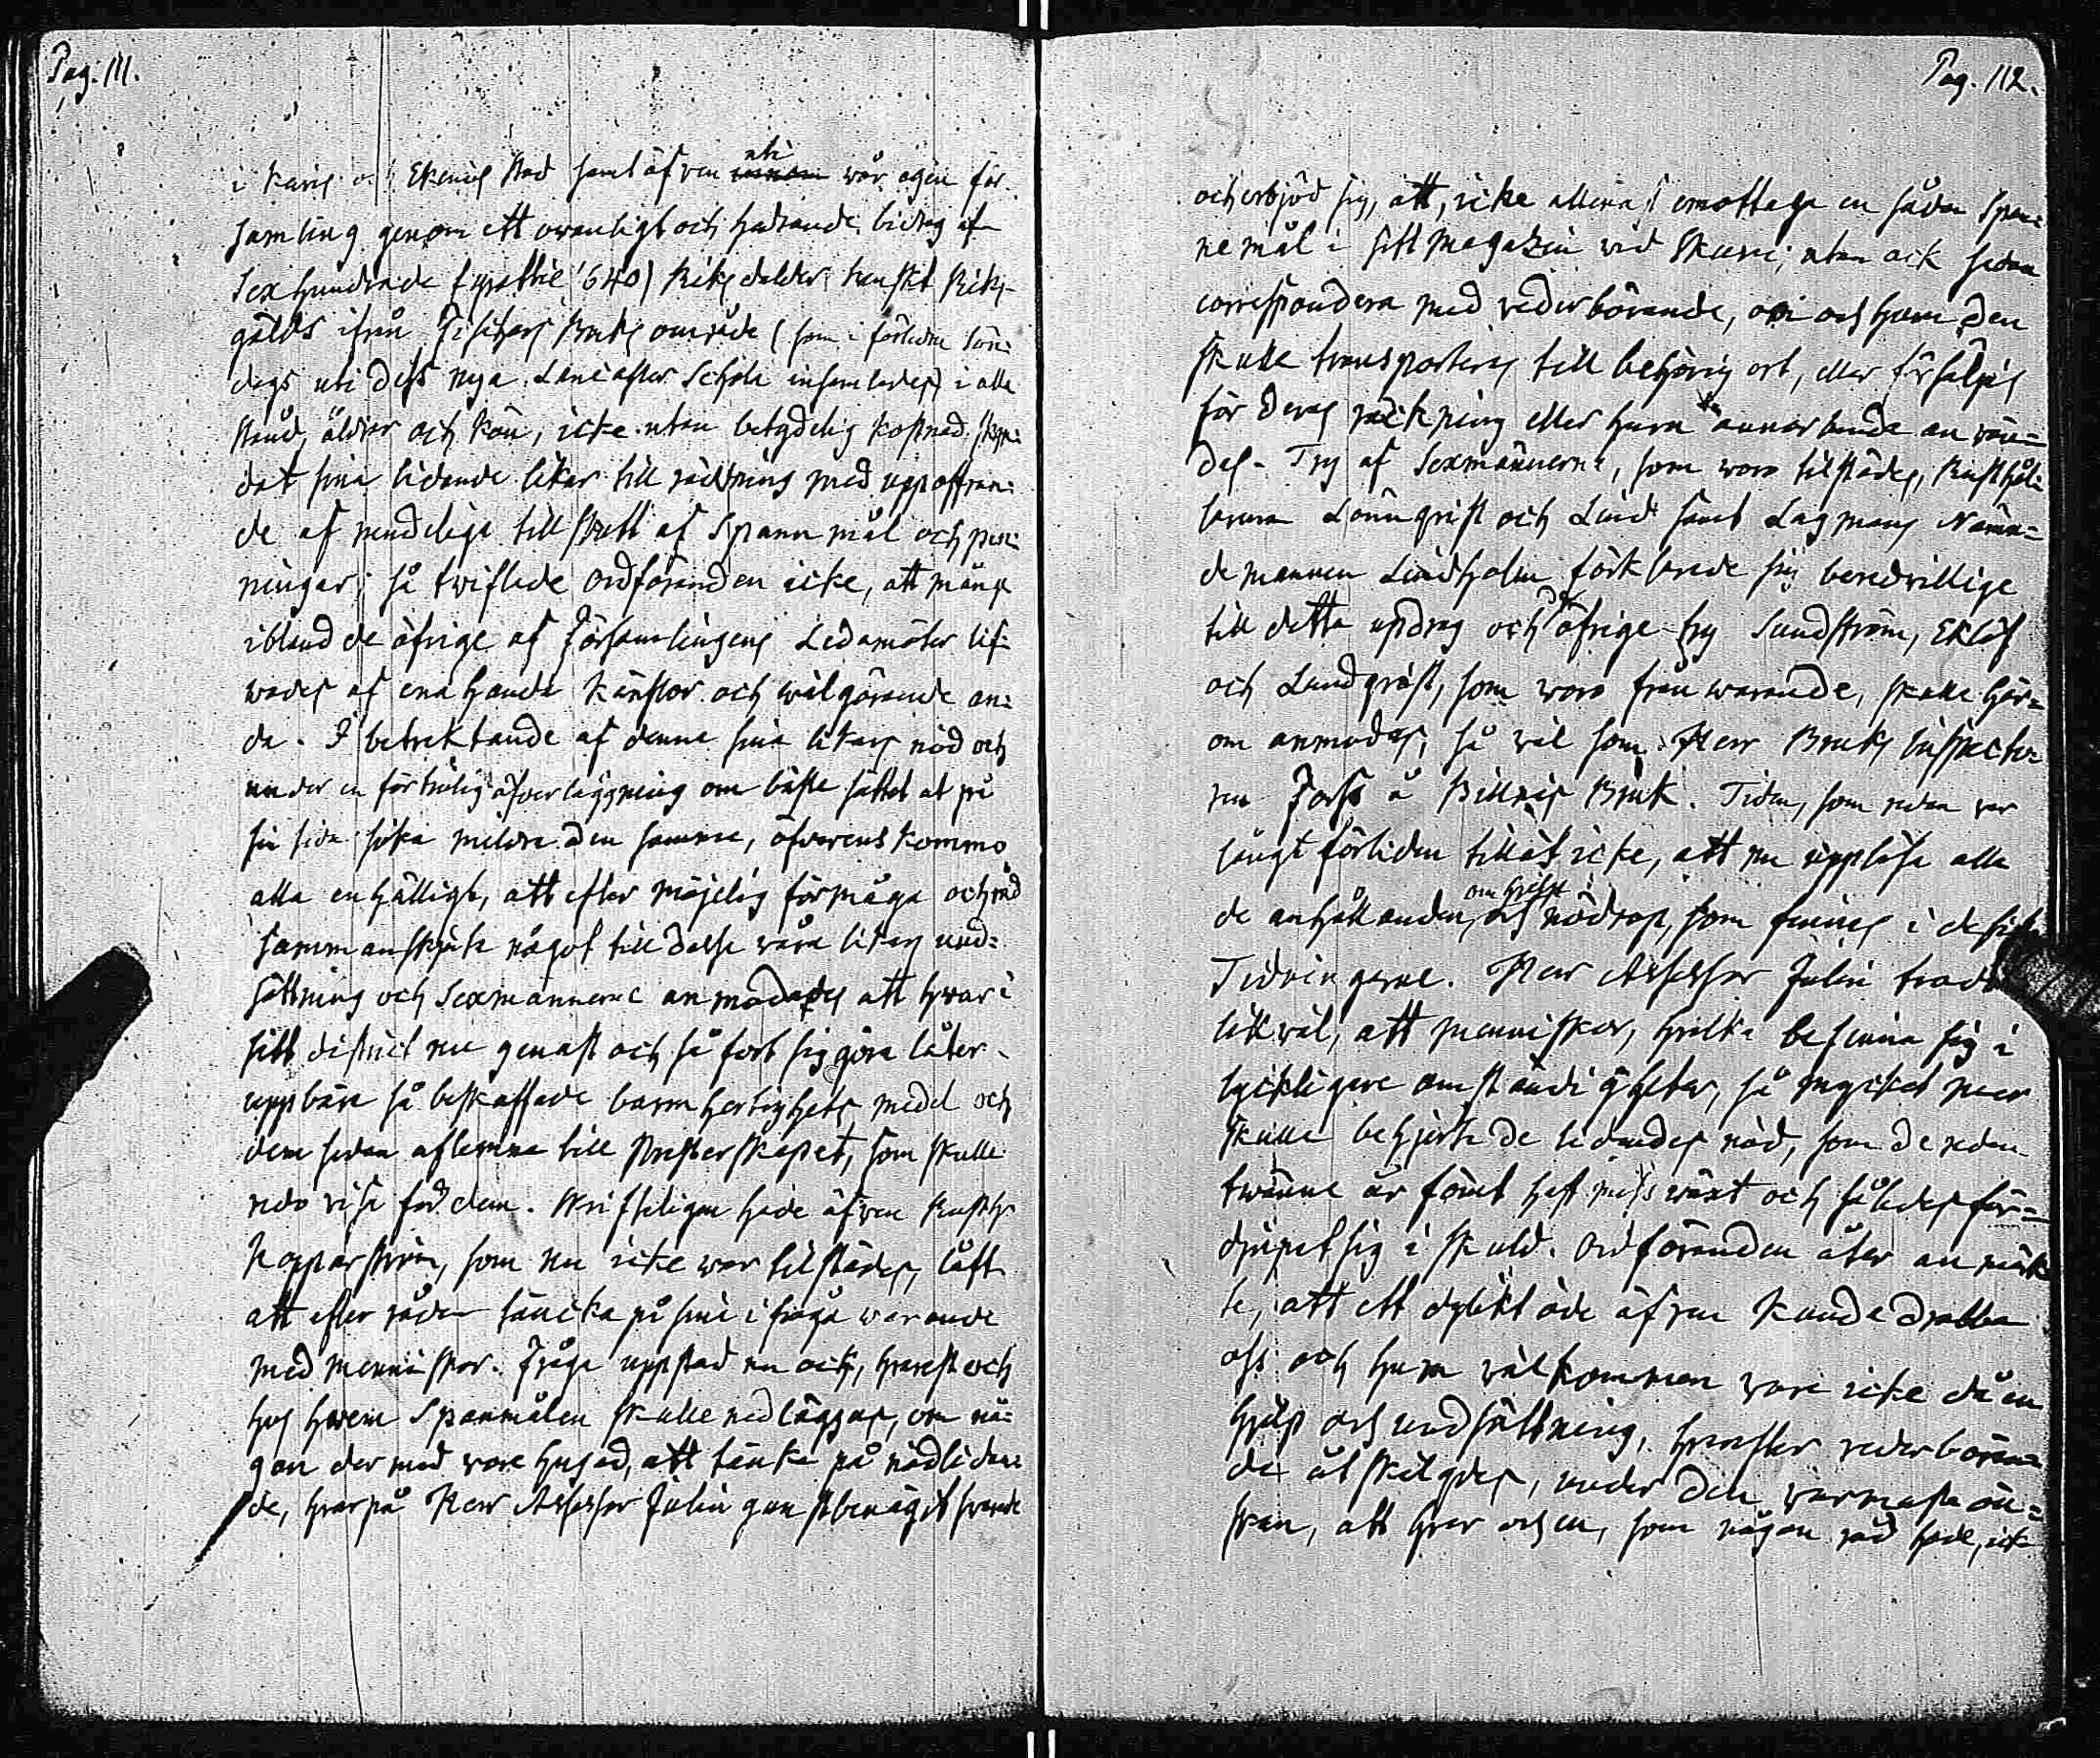 Pag. 111.
i Karis och Ekenäs Stad samt äfven uti wår egen för-
samling genom ett ovanligt och hedrande bidrag af
Sexhundrade fyratie (640) Riksdaler Svenskt Riks-
gälds ifrån Fiskars Bruks område (som i förleden sön-
dags uti dess nya Lancaster Schola insamlades) i alla
stånd, åldrar och kön, icke utan betydelig kostnad skyn-
dat sina lidande likar till räddning med uppoffran-
de af nendelige tillskott af Spannmål och pen-
ningar; så twiflade Ordföranden icke, att många
ibland de öfrige af Församlingens Ledamöter lif-
wades af enahanda känslor och wälgörande an-
da. I betraktande af denna sina likars nöd och
under en förtrolig öfverläggning om bäste sättet at på
sin sida söka mildra den samma, öfverenskommo
alla enhälligt, att efter möjelig förmåga och råd
sammanskjuta något till desse våra likars und-
sättning och Sexmännerne anmodades att hvar i
sitt district nu genast och så fort sig göra låter
uppbära så beskaffade barmhertighets medel och
dem sedan aflemna till Presterskapet, som skulle
redovisa för dem. Skrifteligen hade äfven Rusth.
Kopparström, som nu icke war tilstädes, låft
att efter råder täncka på sine i fråga warande
med menniskor. Fråga uppstod nu ock, hvarest och
hos hvem Spanmålen skulle nedläggas, om nå-
gon der med vore hugad, att tänka på nödlidan-
de, hvarpå Herr Assessor Julin gunstbenäget svarade
Pag. 112.
och erbjöd sig, att, icke allenast emottaga en sådan Span-
nemål i sitt Magazin vid Skuru; utan ock sedan
correspondera med vederbörande, om och huru den
skulle transporteras till behörig ort, eller försäljas
för deras räckning eller huru annorlunda använ-
das. Try af Sexmännerne, som woro tilstädes, Rusthål-
laren Lönnqvist och Lind samt Lagmans Nämn-
demannen Lindholm förklarade sig beredvillige
till detta updrag och de öfrige try Sundström, Eklöf
och Lundqvist, som woro frånwarande, skulle här-
om anmodas, så väl som Herr Bruks Inspecto-
ren Forss å Billnäs Bruk. Tiden, som redan var
långt förliden tillät icke, att nu uppläsa alla
de anhållanden, om hjelp i nödrop, som finnes i de sista
Tidningarne. Herr Assessor Julin trodde
likväl, att menniskor, hvilka befinna sig i
lyckligare omständigheter, så mycket mer
skulle behjerta de lidandes nöd, som de redan
twänne år förut haft missväxt och således för-
djupat sig i skuld. Ordföranden åter anmärk-
te, att ett dylikt öde äfven kunde drabba
oss och huru välkommen vore icke då en
hjälp och undsättning, hvarefter vederböran-
de åtskilgdes, under den varmaste ön-
skan, att hvar och en, som någon råd hade, icke